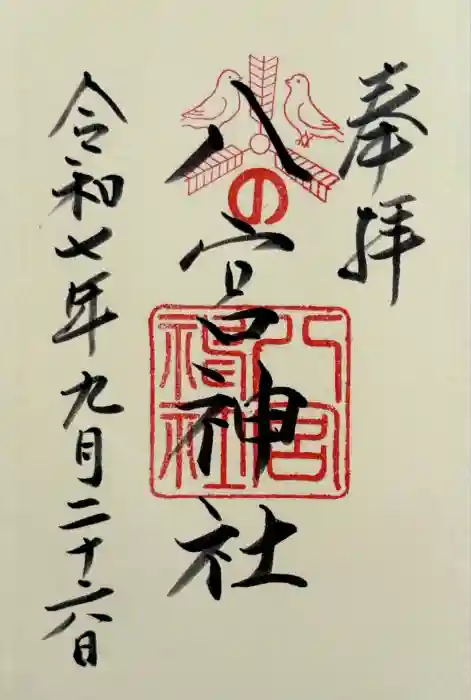 奉拝
八宮神社
の
八宮
神社
令和七年九月二十六日